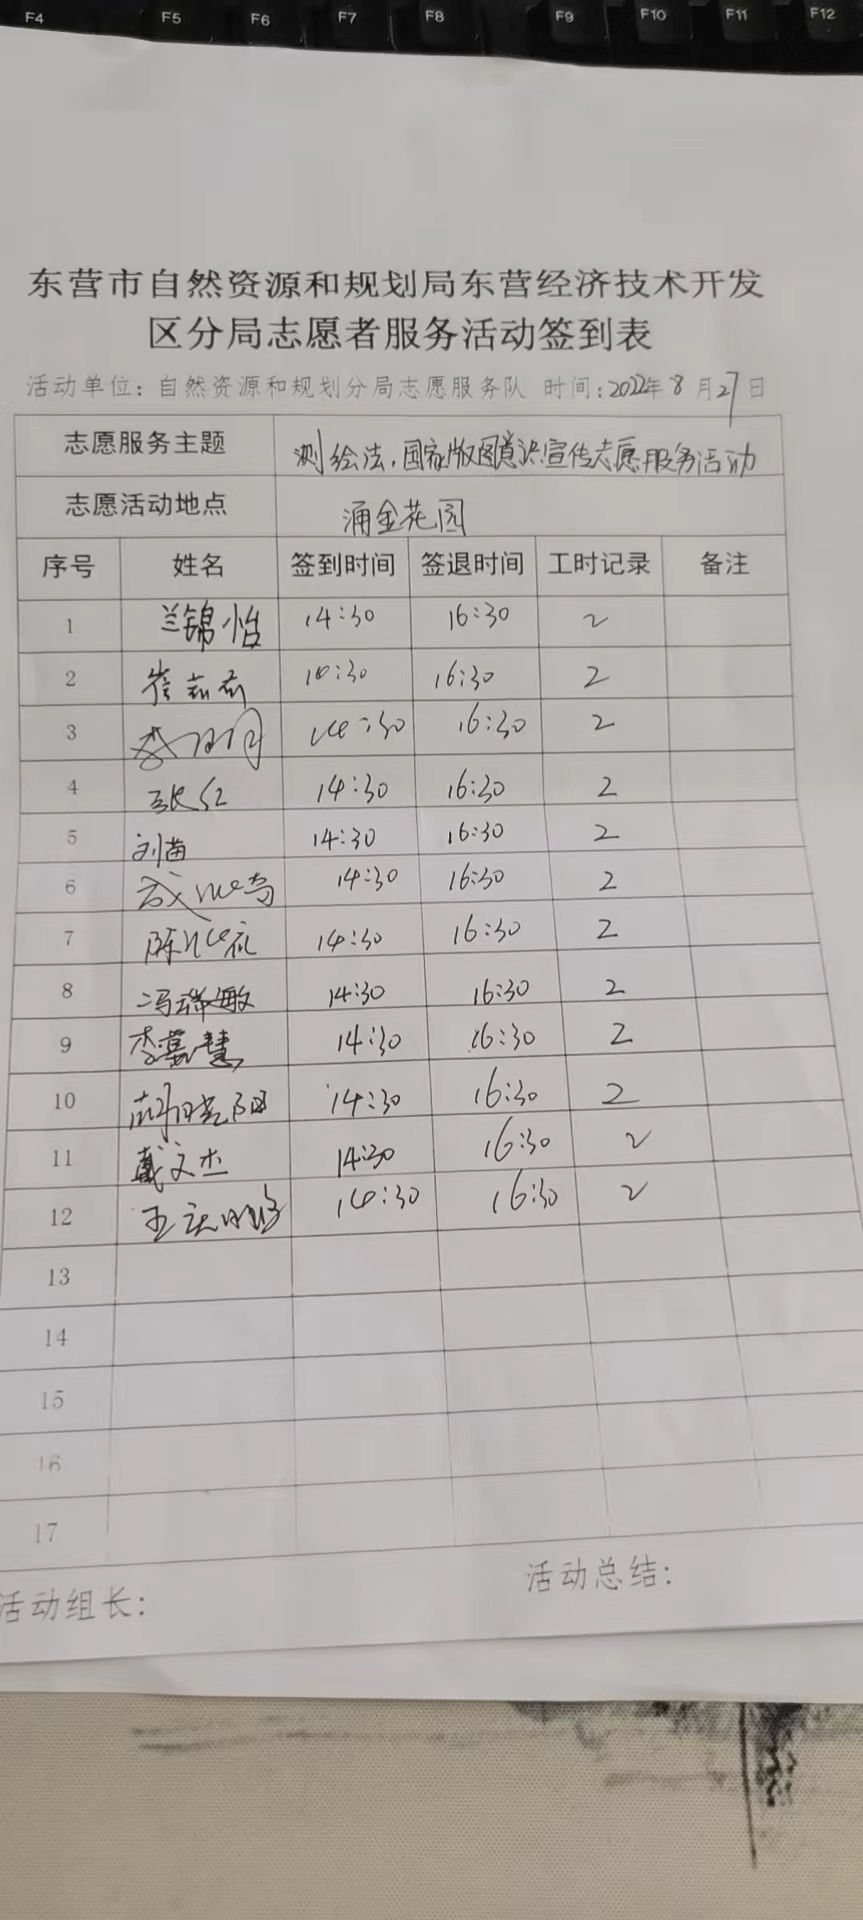 F4 F5 F6 F7 F8 F9 F10 F11 F12
东营市自然资源和规划局东营经济技术开发
区分局志愿者服务活动签到表
活动单位：自然资源和规划分局志愿服务队 时间：2022年8月27日
志愿服务主题 测绘法、国家版图意识宣传志愿服务活动
志愿活动地点 涌金花园
序号 姓名 签到时间 签退时间 工时记录 备注
1 兰锦怡 14:30 16:30 2
2 14:30 16:30 2
3 14:30 16:30 2
4 张红 14:30 16:30 2
5 刘苗 14:30 16:30 2
6 14:30 16:30 2
7 14:30 16:30 2
8 冯瑞敏 14:30 16:30 2
9 李嘉慧 14:30 16:30 2
10 14:30 16:30 2
11 戴文杰 14:30 16:30 2
12 14:30 16:30 2
13
14
15
16
17
活动组长： 活动总结：